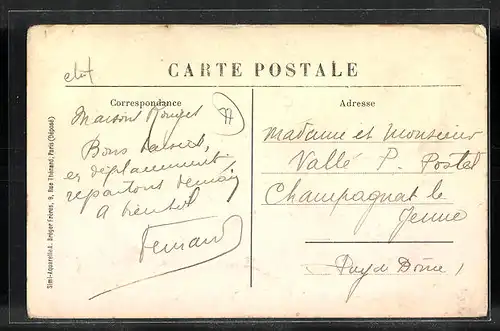 CARTE POSTALE
Correspondance
Adresse
Maison Rouget
Bons baisers,
en déplacement
repartons demain
A bientot
Fernand
Madame et Monsieur
Vallé P. Postel
Champagnat le
Jeune
Puy de Dôme
Simi-Aquarelle A. Bréger Frères, 9, Rue Thénard, Paris (Déposé)
77